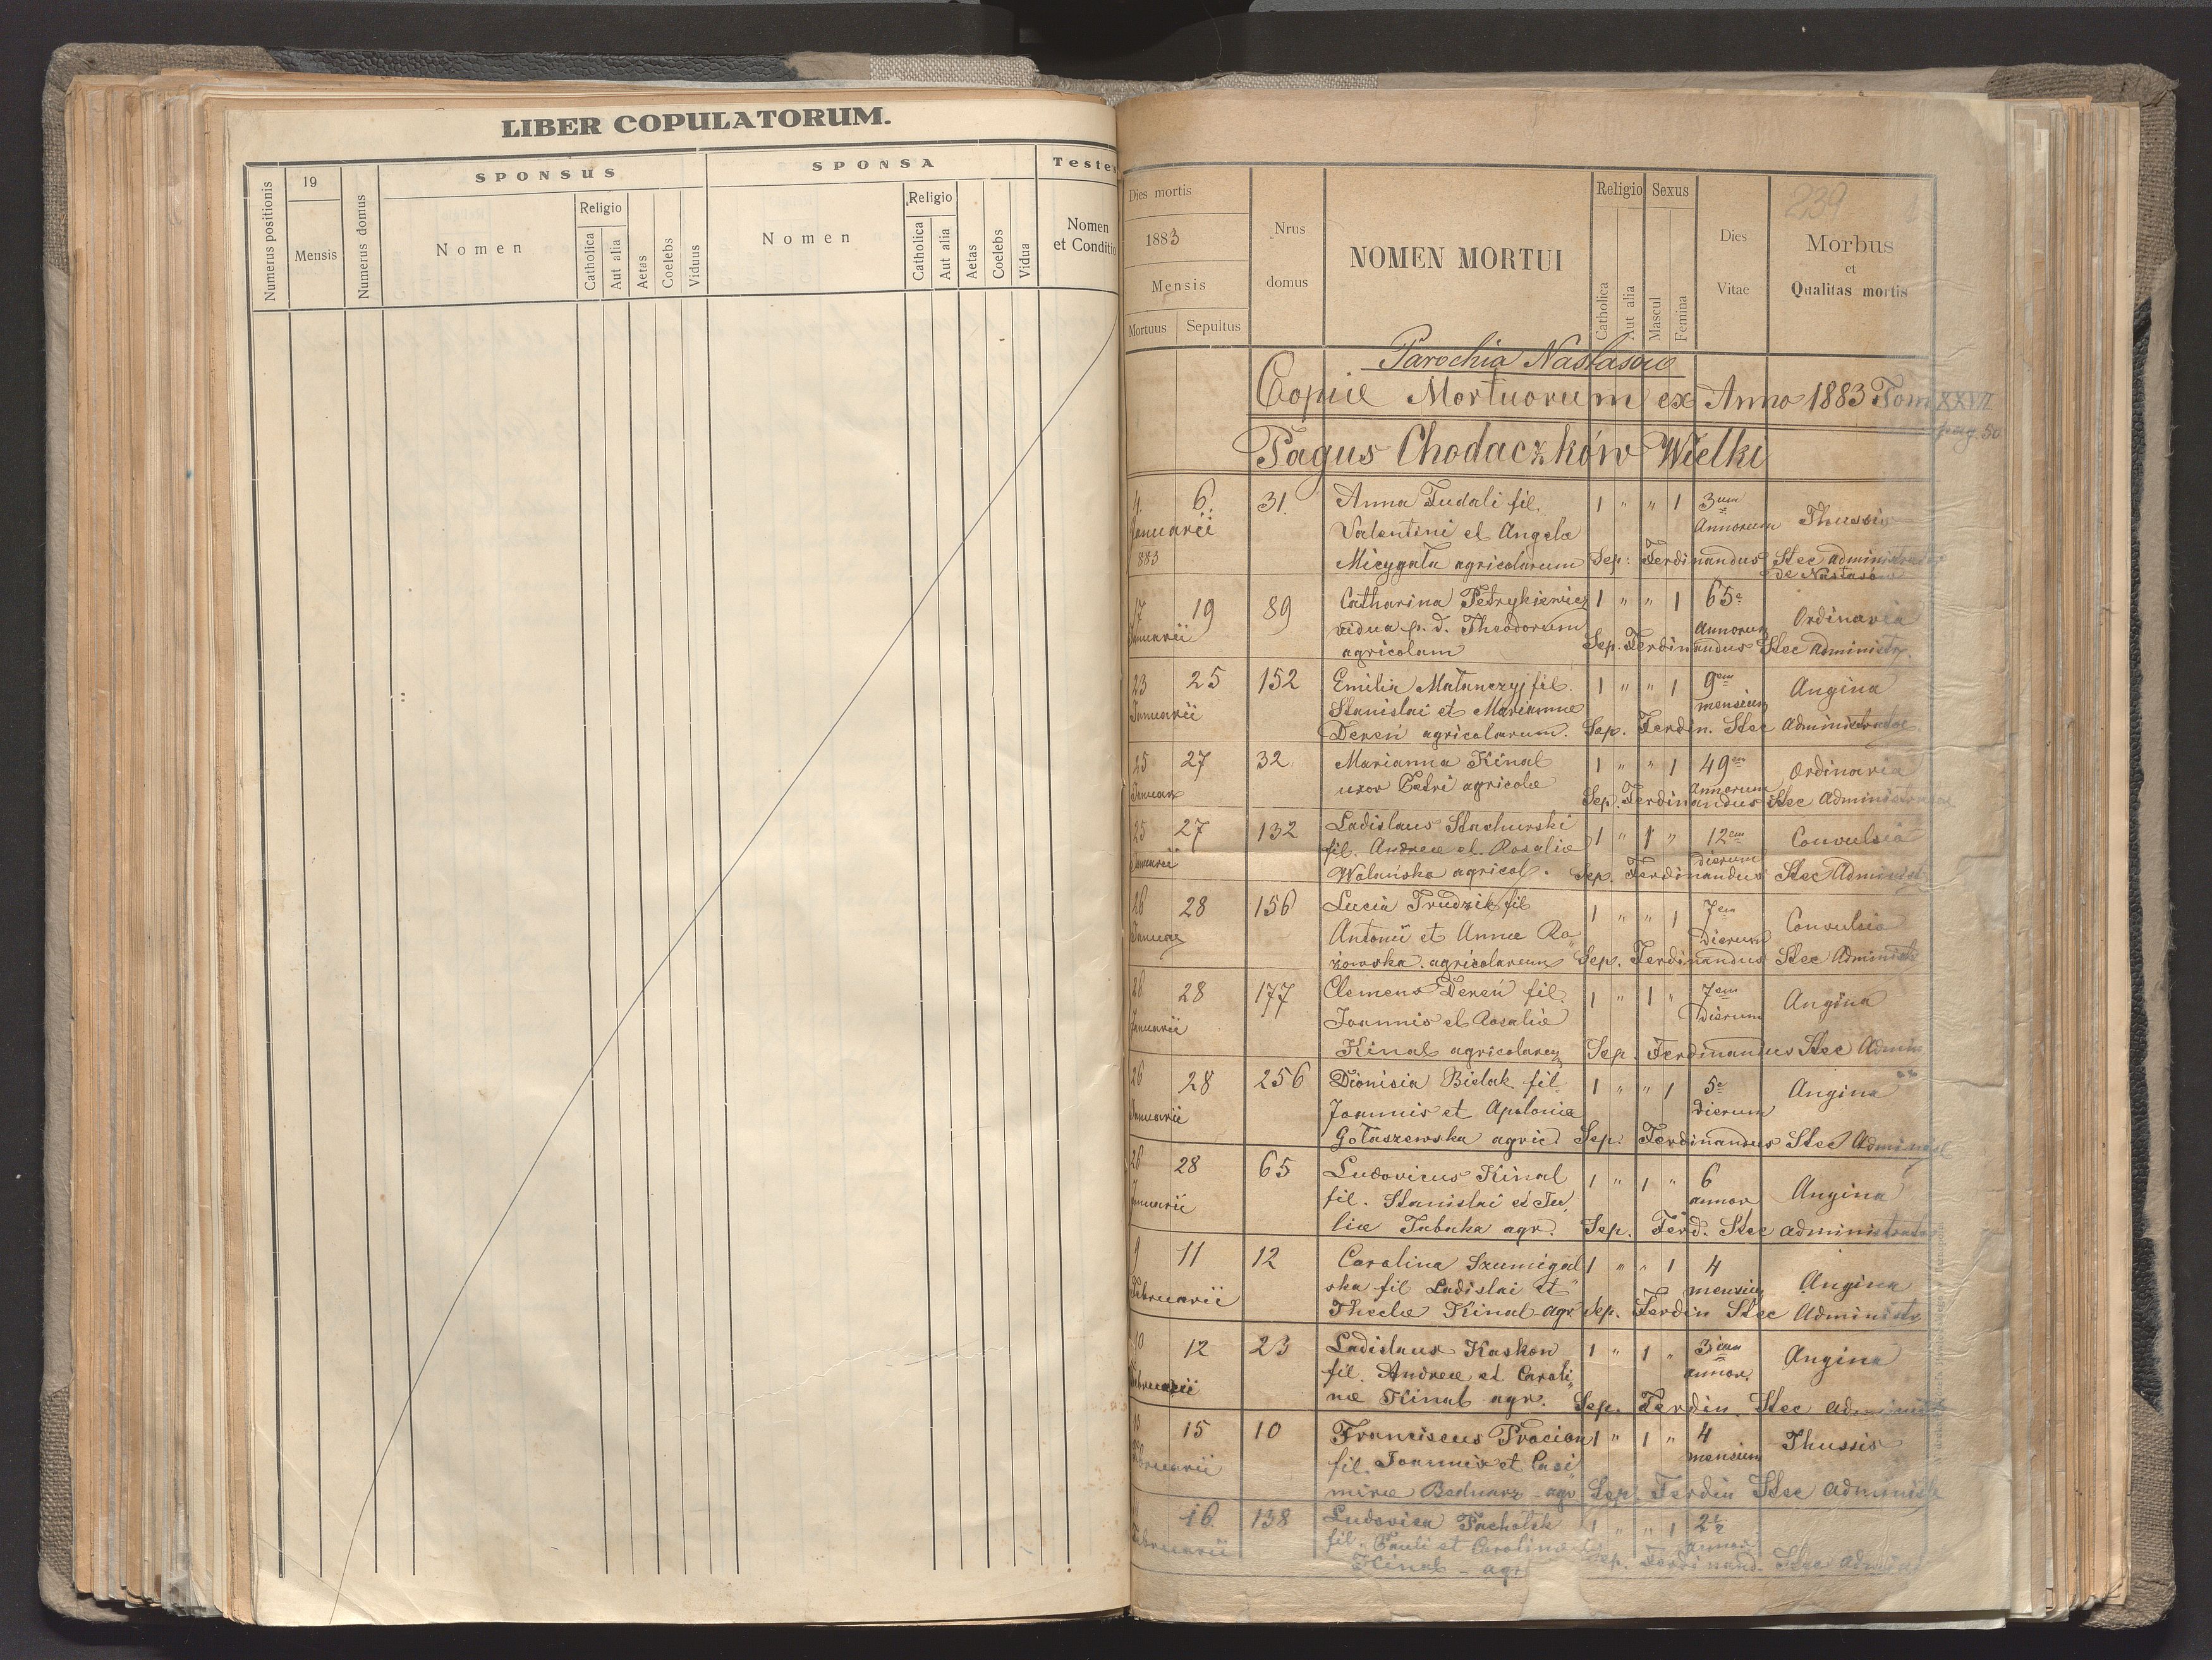 LIBER COPULATORUM.
Numerus positionis
19
Mensis
Numerus domus
SPONSUS
Nomen
Religio
Catholica
Aut alia
Aetas
Coelebs
Viduus
SPONSA
Nomen
Religio
Catholica
Aut alia
Aetas
Coelebs
Vidua
Testes
Nomen
et Conditio
Dies mortis
1883
Mensis
Mortuus
Sepultus
Nrus
domus
NOMEN MORTUI
Religio
Catholica
Aut alia
Sexus
Mascul
Femina
Dies
Vitae
239
Morbus
et
Qualitas mortis
Parochia Nastasów
Copie Mortuorum ex Anno 1883 Tom XXVII
pag. 50
Pagus Chodaczków Wielki
4 6. 31. Anna Fudali fil. 1 " " 1 3um
Januarii Valentini et Angelae Annorum Thussis
883 Micygała agricolarum Sep: Ferdinandus Stec administrator
de Nastasów
17 19 89 Catharina Petrykiewicz 1 " " 1 65a Ordinaria
Januarii vidua p. d. Theodorum Annorum
agricolam Sep. Ferdinandus Stec administr.
23 25 152 Emilia Matanczyj fil. 1 " " 1 9em Angina
Januarii Stanislai et Mariannae mensium
Dereń agricolarum. Sep. Ferdin. Stec administrator
25 27 32 Marianna Kinal 1 " " 1 49em Ordinaria
Januar uxor Petri agricolae Annorum
Sep. Ferdinandus Stec administrator
25 27 132 Ladislaus Stachurski 1 " 1 " 12em Convulsio
Januarii fil. Andreae et Rosaliae dierum
Wolańska agricol. Sep. Ferdinandus Stec Administ
26 28 156 Lucia Trudzik fil 1 " " 1 7em Convulsio
Januar Antonii et Annae Ro dierum
żowska agricolarum Sep. Ferdinandus Stec Administ
26 28 177 Clemens Dereń fil. 1 " 1 " 7em Angina
Januarii Joannis et Rosaliae Dierum
Kinal agricolarum Sep. Ferdinandus Stec Admin
26 28 256 Dionisia Bielak fil 1 " " 1 5e Angina
Januarii Joannis et Apoloniae dierum
Gołaszewska agric. Sep. Ferdinandus Stec Administ
26 28 65 Ludovicus Kinal 1 " 1 " 6 Angina
Januarii fil. Stanislai et Ju annor
liae Tabaka agr. Sep. Ferd. Stec administrator
9 11 12 Carolina Szumigal 1 " " 1 4 Angina
Februarii ska fil Ladislai et mensium
Theclae Kinal agr Sep. Ferdin Stec Administr
10 12 23 Ladislaus Kaskon 1 " 1 " 3um Angina
Februarii fil. Andreae et Caroli annor.
nae Kinal agr. Sep. Ferdin. Stec administ
15 10 Franciscus Procion 1 " 1 " 4 Thussis
Februarii fil. Joannis et Casi mensium
mirae Bednarz agr Sep. Ferdin Stec administ
16 138 Ludovica Pacholek 1 " " 1 2½
Februarii fil. Pauli et Carolinae annor
Kinal - agr Sep. Ferdinand. Stec admin